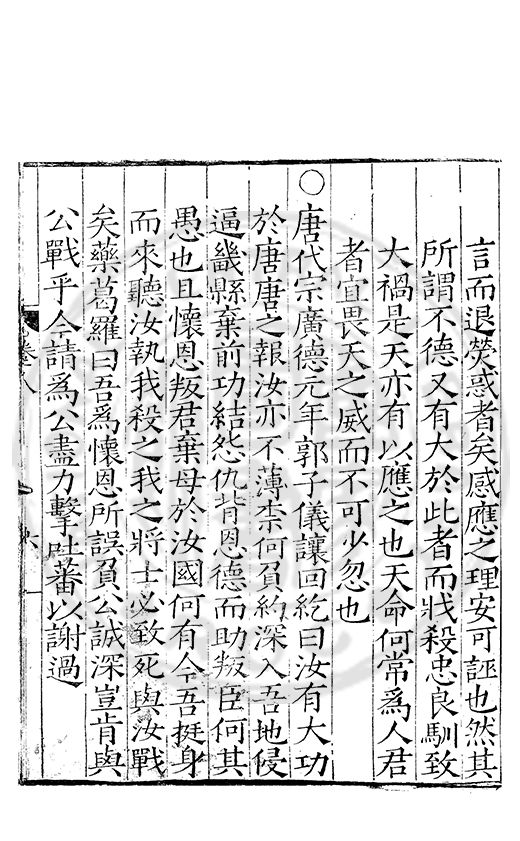 言而退熒惑者矣感應之理安可誣也然其
所謂不德又有大於此者而戕殺忠良馴致
大禍是天亦有以應之也天命何常爲人君
者宜畏天之威而不可少忽也
○唐代宗廣德元年郭子儀讓回紇曰汝有大功
於唐唐之報汝亦不薄柰何負約深入吾地侵
逼畿縣棄前功結怨仇背恩德而助叛臣何其
愚也且懷恩叛君棄母於汝國何有今吾挺身
而來聽汝執我殺之我之將士必致死與汝戰
矣藥葛羅曰吾爲懷恩所誤負公誠深豈肯與
公戰乎今請爲公盡力擊吐蕃以謝過
卷八